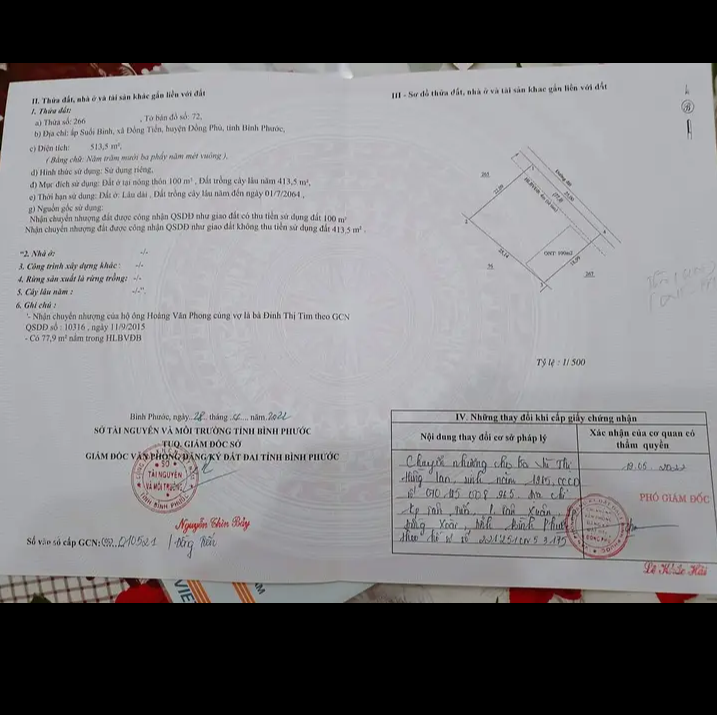 II. Thửa đất, nhà ở và tài sản khác gắn liền với đất
1. Thửa đất:
a) Thửa số: 266 , Tờ bản đồ số: 72,
b) Địa chỉ: ấp Suối Binh, xã Đồng Tiến, huyện Đồng Phú, tỉnh Bình Phước,
c) Diện tích: 513,5 m²,
( Bằng chữ: Năm trăm mười ba phẩy năm mét vuông ),
d) Hình thức sử dụng: Sử dụng riêng,
đ) Mục đích sử dụng: Đất ở tại nông thôn 100 m² , Đất trồng cây lâu năm 413,5 m²,
e) Thời hạn sử dụng: Đất ở: Lâu dài , Đất trồng cây lâu năm đến ngày 01/7/2064 ,
g) Nguồn gốc sử dụng:
Nhận chuyển nhượng đất được công nhận QSDĐ như giao đất có thu tiền sử dụng đất 100 m²
Nhận chuyển nhượng đất được công nhận QSDĐ như giao đất không thu tiền sử dụng đất 413,5 m² .
"2. Nhà ở: -/-
3. Công trình xây dựng khác: -/-
4. Rừng sản xuất là rừng trồng: -/-
5. Cây lâu năm : -/-".
6. Ghi chú :
'- Nhận chuyển nhượng của hộ ông Hoàng Văn Phong cùng vợ là bà Đinh Thị Tim theo GCN
QSDĐ số : 10316 , ngày 11/9/2015
- Có 77,9 m² nằm trong HLBVĐB
Bình Phước, ngày 28 tháng năm 2022
SỞ TÀI NGUYÊN VÀ MÔI TRƯỜNG TỈNH BÌNH PHƯỚC
TUQ. GIÁM ĐỐC SỞ
GIÁM ĐỐC VĂN PHÒNG ĐĂNG KÝ ĐẤT ĐAI TỈNH BÌNH PHƯỚC
SỞ
TÀI NGUYÊN
VÀ MÔI TRƯỜNG
TỈNH BÌNH PHƯỚC
Nguyễn Thìn Bảy
Số vào sổ cấp GCN:
III - Sơ đồ thửa đất, nhà ở và tài sản khác gắn liền với đất
B
Đường đất
265
ONT: 100m2
267
Tỷ lệ : 1/ 500
IV. Những thay đổi khi cấp giấy chứng nhận
Nội dung thay đổi cơ sở pháp lý
Xác nhận của cơ quan có
thẩm quyền
Chuyển nhượng cho bà Vũ Thị
sinh năm 1985, CCCD
số địa chỉ
Tân Xuân,
Đồng Xoài, tỉnh Bình Phước
theo hồ sơ số
PHÓ GIÁM ĐỐC
ĐỒNG PHÚ
Lê Khắc Hải